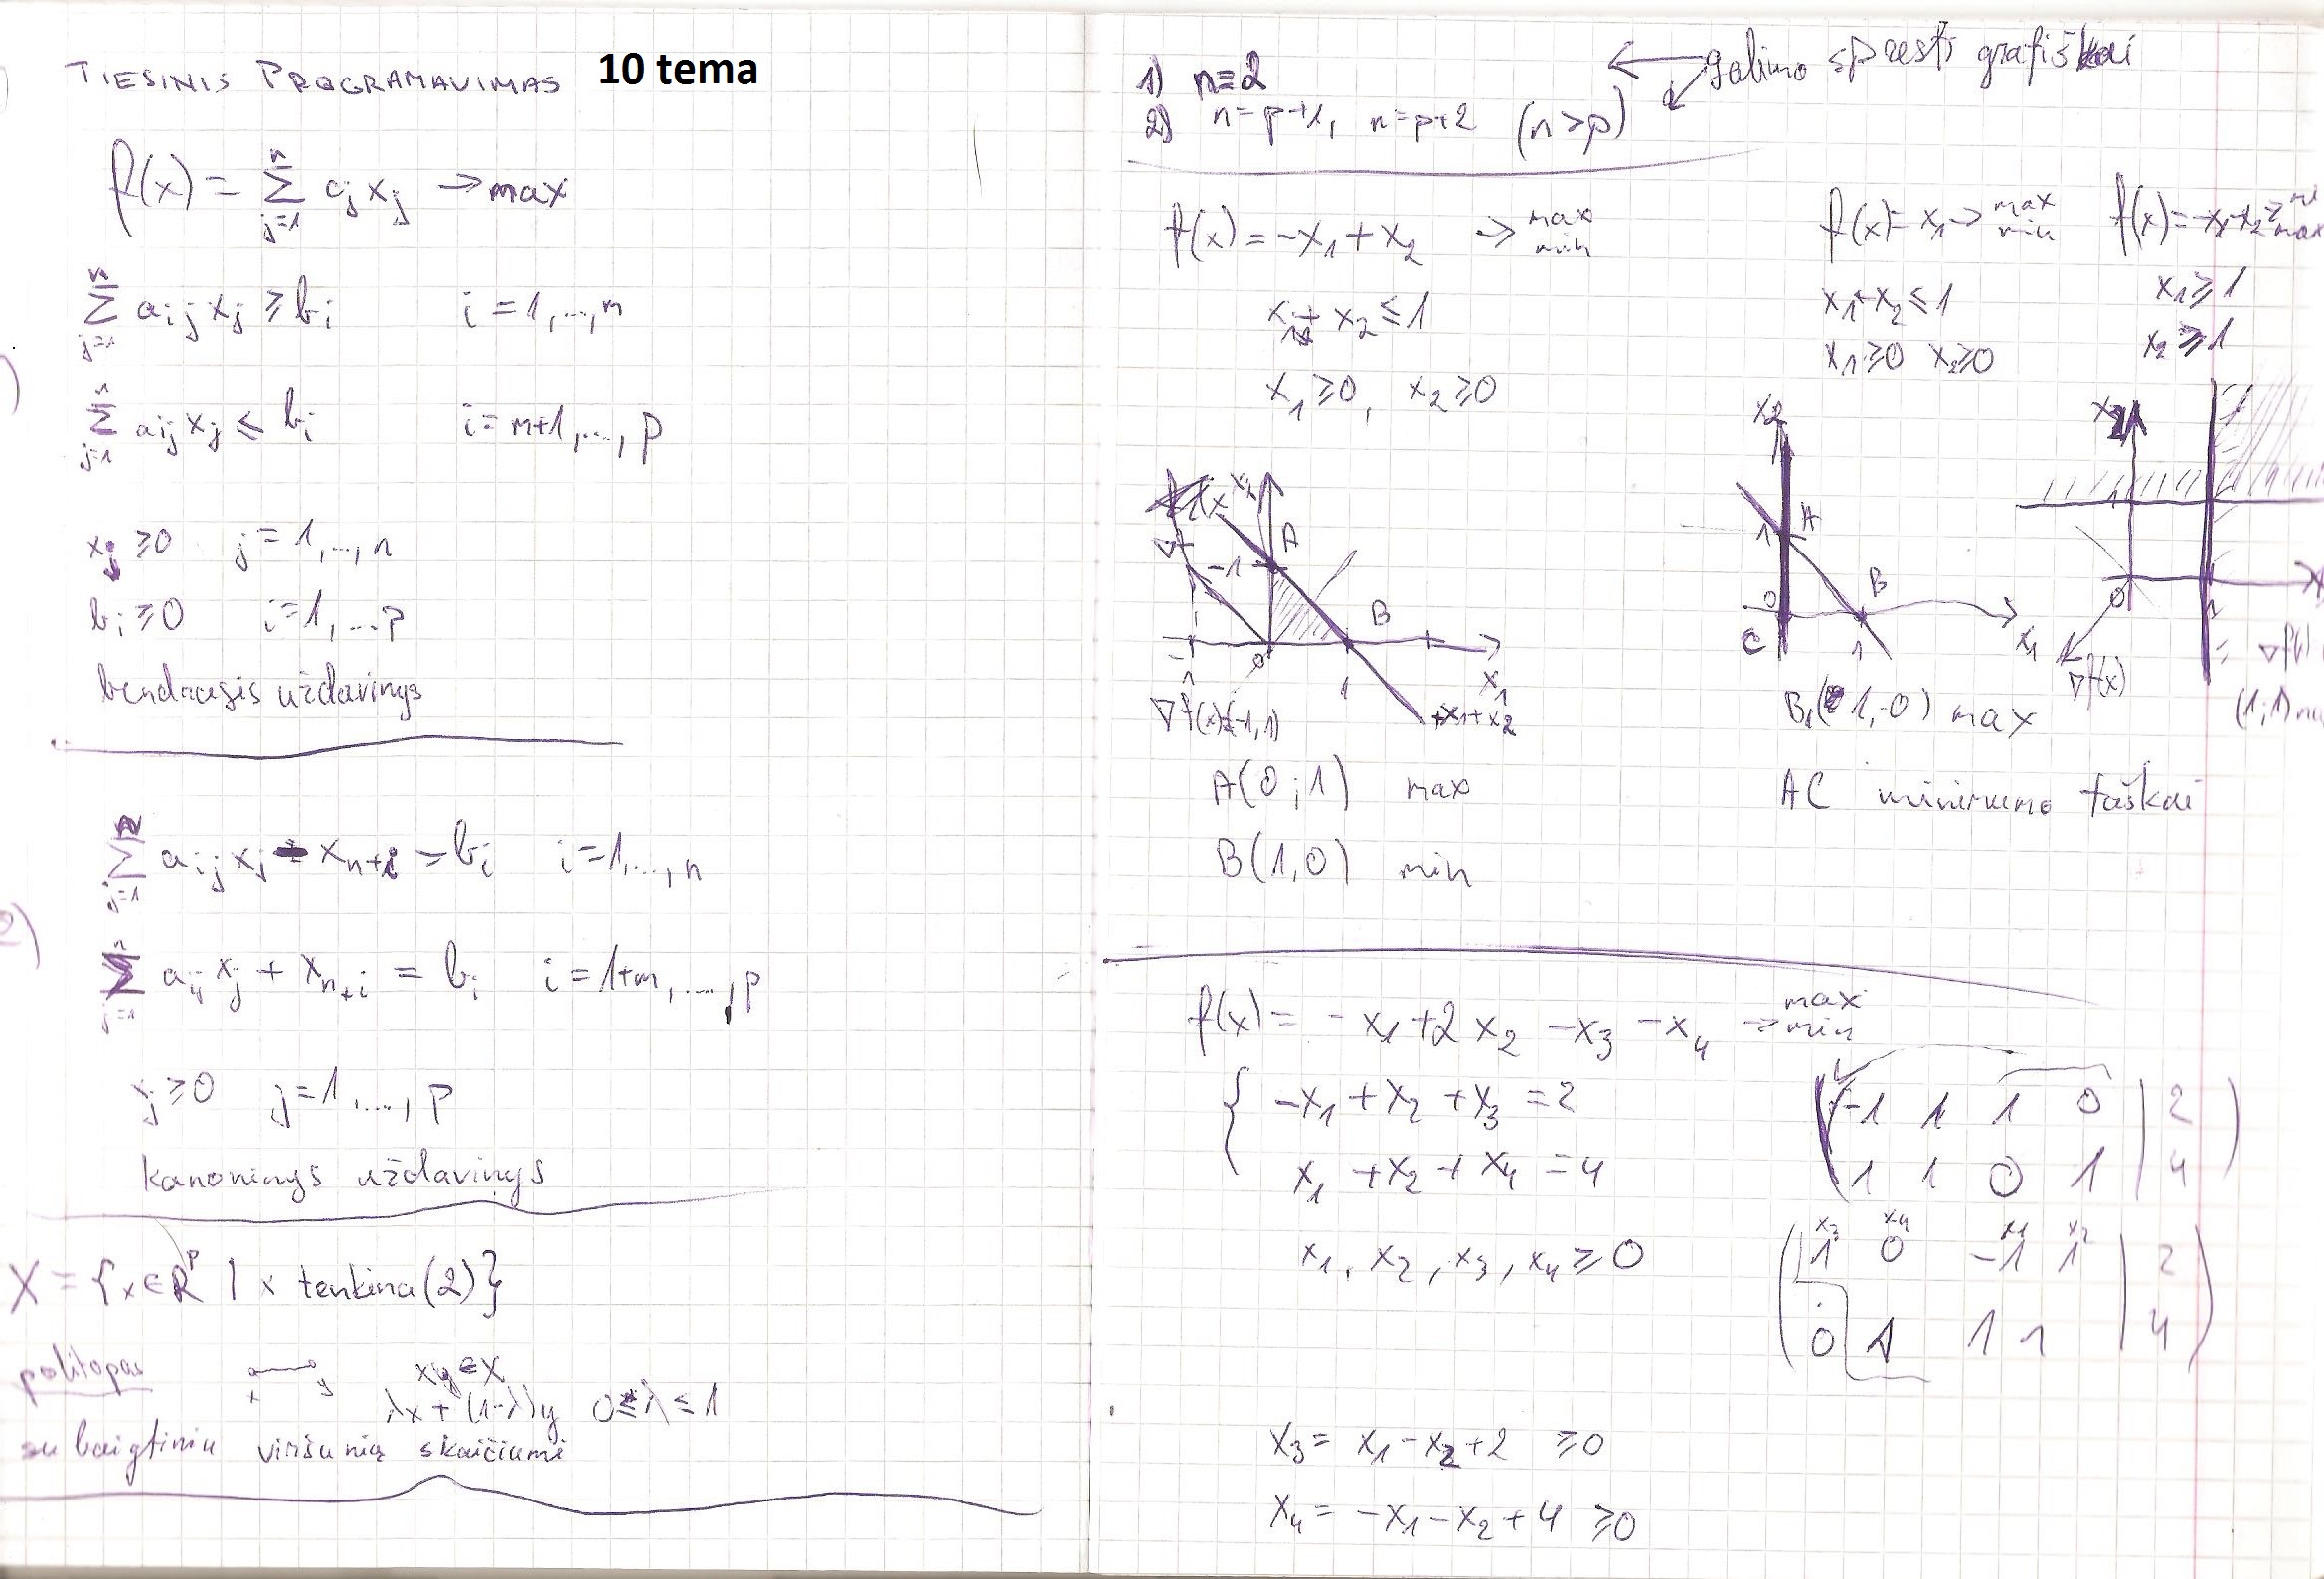 TIESINIS PROGRAMAVIMAS 10 tema
f(x) = ∑ⁿⱼ₌₁ cⱼxⱼ → max
∑ⁿⱼ₌₁ aᵢⱼxⱼ ≥ bᵢ i = 1,...,m
∑ⁿⱼ₌₁ aᵢⱼxⱼ ≤ bᵢ i = m+1,...,p
xⱼ ≥ 0 j = 1,...,n
bᵢ ≥ 0 i = 1,...p
bendrasis uždavinys
∑ⁿⱼ₌₁ aᵢⱼxⱼ - xₙ₊ᵢ = bᵢ i = 1,...,n
2)
∑ⁿⱼ₌₁ aᵢⱼxⱼ + xₙ₊ᵢ = bᵢ i = 1+m,...,p
xⱼ ≥ 0 j = 1,...,p
kanoninys uždavinys
X = {x ∈ Rᵖ | x tenkina (2)}
politopas x y xy ∈ X
λx + (1-λ)y 0 ≤ λ ≤ 1
su baigtiniu viršunių skaičiumi
1) n = 2 galima spręsti grafiškai
2) n = p+1, n = p+2 (n > p)
f(x) = -x₁ + x₂ → max min
x₁ + x₂ ≤ 1
x₁ ≥ 0, x₂ ≥ 0
A
-1
B
0
1
x₁
∇f(x)=(-1,1)
x₁+x₂
A(0;1) max
B(1,0) min
f(x) = x₁ → max min
x₁ + x₂ ≤ 1
x₁ ≥ 0 x₂ ≥ 0
x₂
1 A
B
0
C
1
x₁
B₁(1,0) max
AC minimumo taškai
f(x) = -x₁-x₂ → max
x₁ ≥ 1
x₂ ≥ 1
x₂
0
∇f(x)
(1;1)
f(x) = -x₁ + 2x₂ - x₃ - x₄ → max min
{ -x₁ + x₂ + x₃ = 2
x₁ + x₂ + x₄ = 4
x₁, x₂, x₃, x₄ ≥ 0
( -1 1 1 0 | 2 )
1 1 0 1 | 4
x₃ x₄ x₁ x₂
( 1 0 -1 1 | 2 )
0 1 1 1 | 4
x₃ = x₁ - x₂ + 2 ≥ 0
x₄ = -x₁ - x₂ + 4 ≥ 0